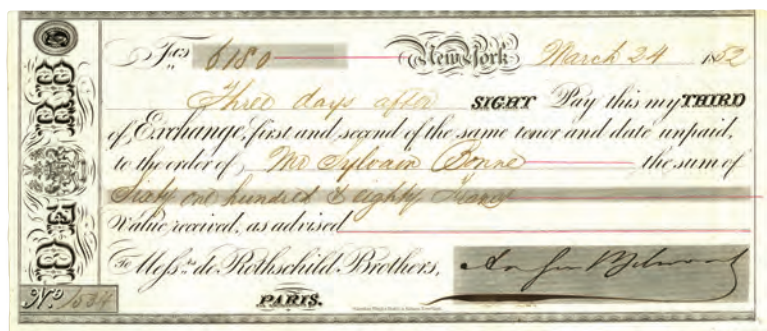 Fcs 6180 New York March 24 1852
Three days after SIGHT Pay this my THIRD
of Exchange, first and second of the same tenor and date unpaid,
to the order of Mr Sylvain Bonne the sum of
Sixty one hundred & eighty Francs
Value received, as advised
To Messrs. de Rothschild Brothers,
PARIS.
No. 1534
DE RB